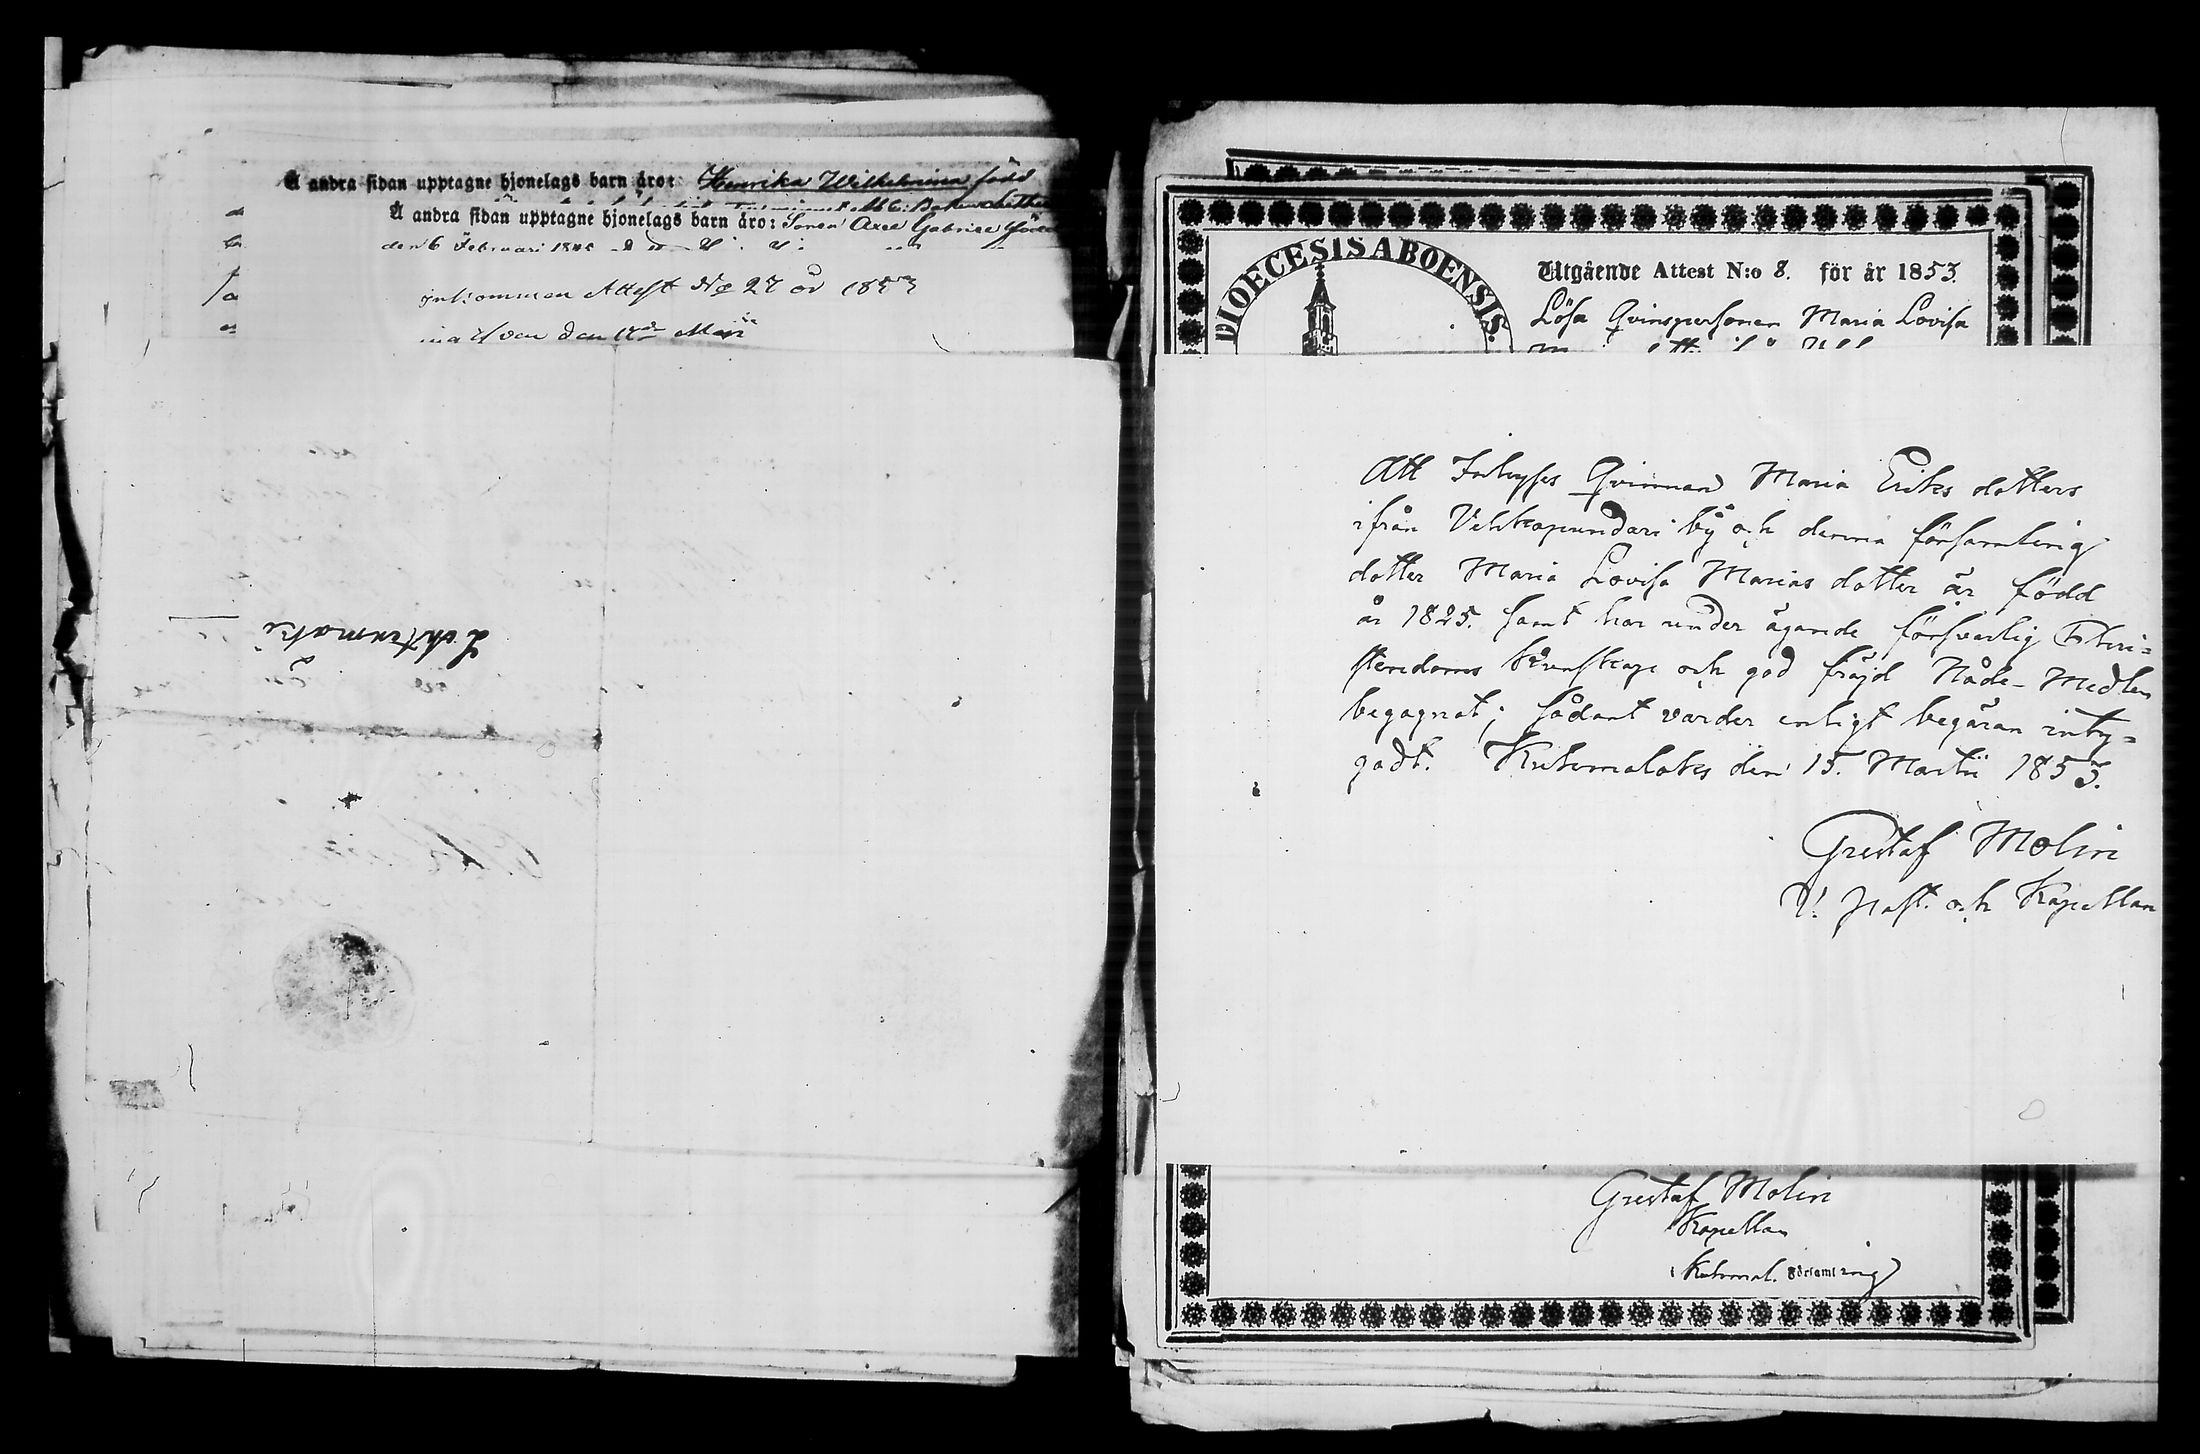 Å andra sidan upptagne hjonelags barn äro: Henrika Wilhelmina född
Å andra sidan upptagne hjonelags barn äro: Sonen Axel Gabriel född
den 6 Februari
Inkommen Attest No 27 år 1853
den Maji
DIOECESIS ABOENSIS.
Utgående Attest N:o 8. för år 1853.
Lösa Qvinspersonen Maria Lovisa
Att Inhyses Qvinnan Maria Eriks dotters
ifrån by och denna församling
dotter Maria Lovisa Marias dotter är född
år 1825. samt har under ägande försvarlig Chri=
stendoms kunskap och god fräjd Nåde-Medlen
begagnat; sådant varder enligt begäran inty=
gadt. Kulsmalaks den 15. Martii 1853.
Gustaf Molin
V. Past. och Kapellan
Gustaf Molin
Kapellan
i församling